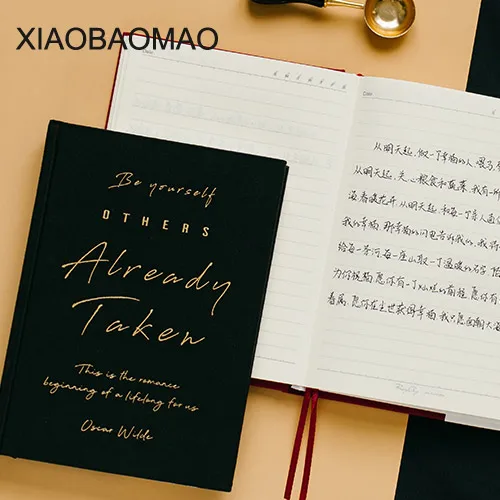 XIAOBAOMAO
Be yourself
OTHERS
Already
Taken
This is the romance
beginning of a lifelong for us
Oscar Wilde
Date
从明天起,做一个幸福的人,喂马,
从明天起,关心粮食和蔬菜,我有一所
海春暖花开,从明天起,和每一个亲人通信
我的幸福,那幸福的闪电告诉我的,我将
给每一条河,每一座山取一个温暖的名字,陌
为你祝福,愿你有一个灿烂的前程,愿你有
眷属,愿你在尘世获得幸福,我只愿面朝大海